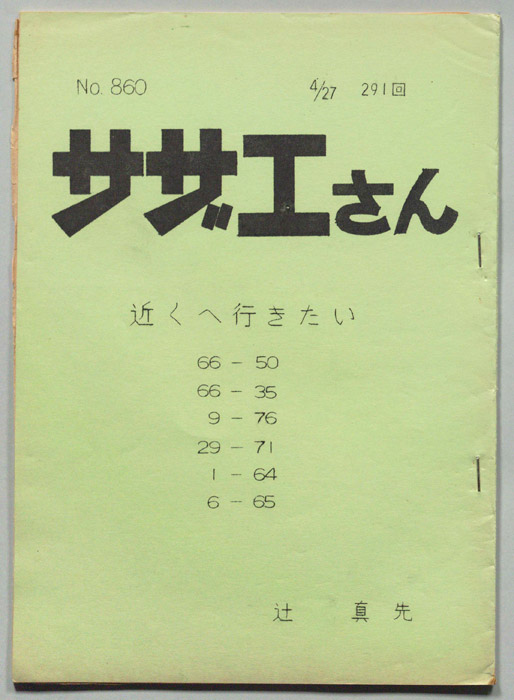 No. 860 4/27 291回
サザエさん
近くへ行きたい
66 - 50
66 - 35
9 - 76
29 - 71
1 - 64
6 - 65
辻 真先